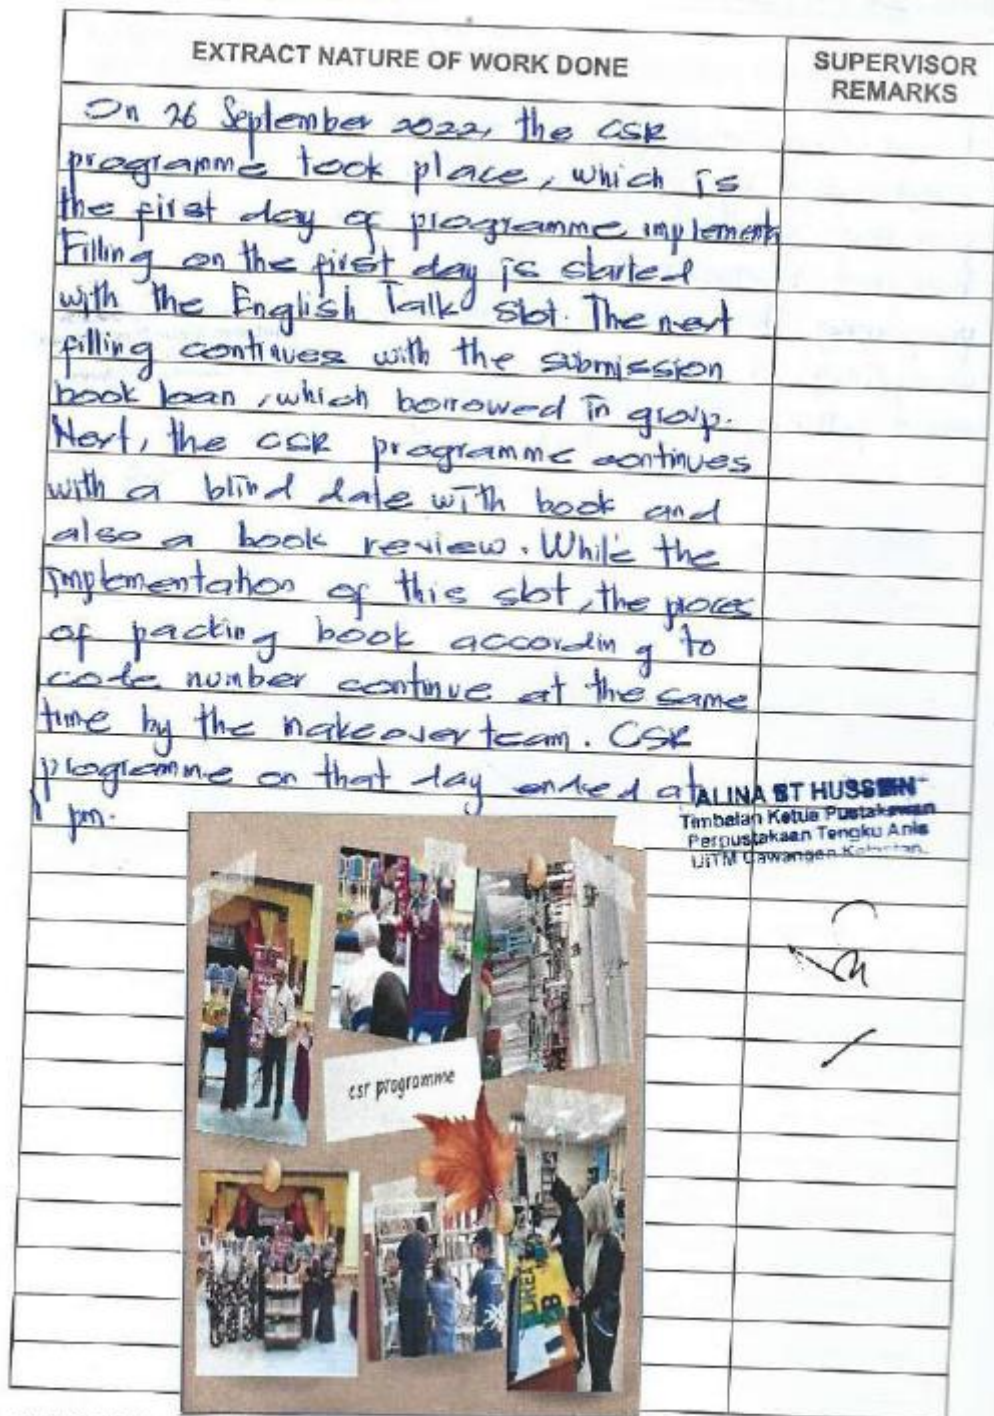 EXTRACT NATURE OF WORK DONE
SUPERVISOR
REMARKS
On 26 September 2022, the CSR
programme took place, which is
the first day of programme implement
Filling on the first day is started
with the English Talk Slot. The next
filling continues with the submission
book loan, which borrowed in group.
Next, the CSR programme continues
with a blind date with book and
also a book review. While the
implementation of this slot, the proces
of packing book according to
code number continue at the same
time by the makeover team. CSR
programme on that day ended at
1 pm.
ALINA BT HUSSEIN
Timbalan Ketua Pustakawan
Perpustakaan Tengku Anis
UiTM Cawangan Kelantan.
csr programme